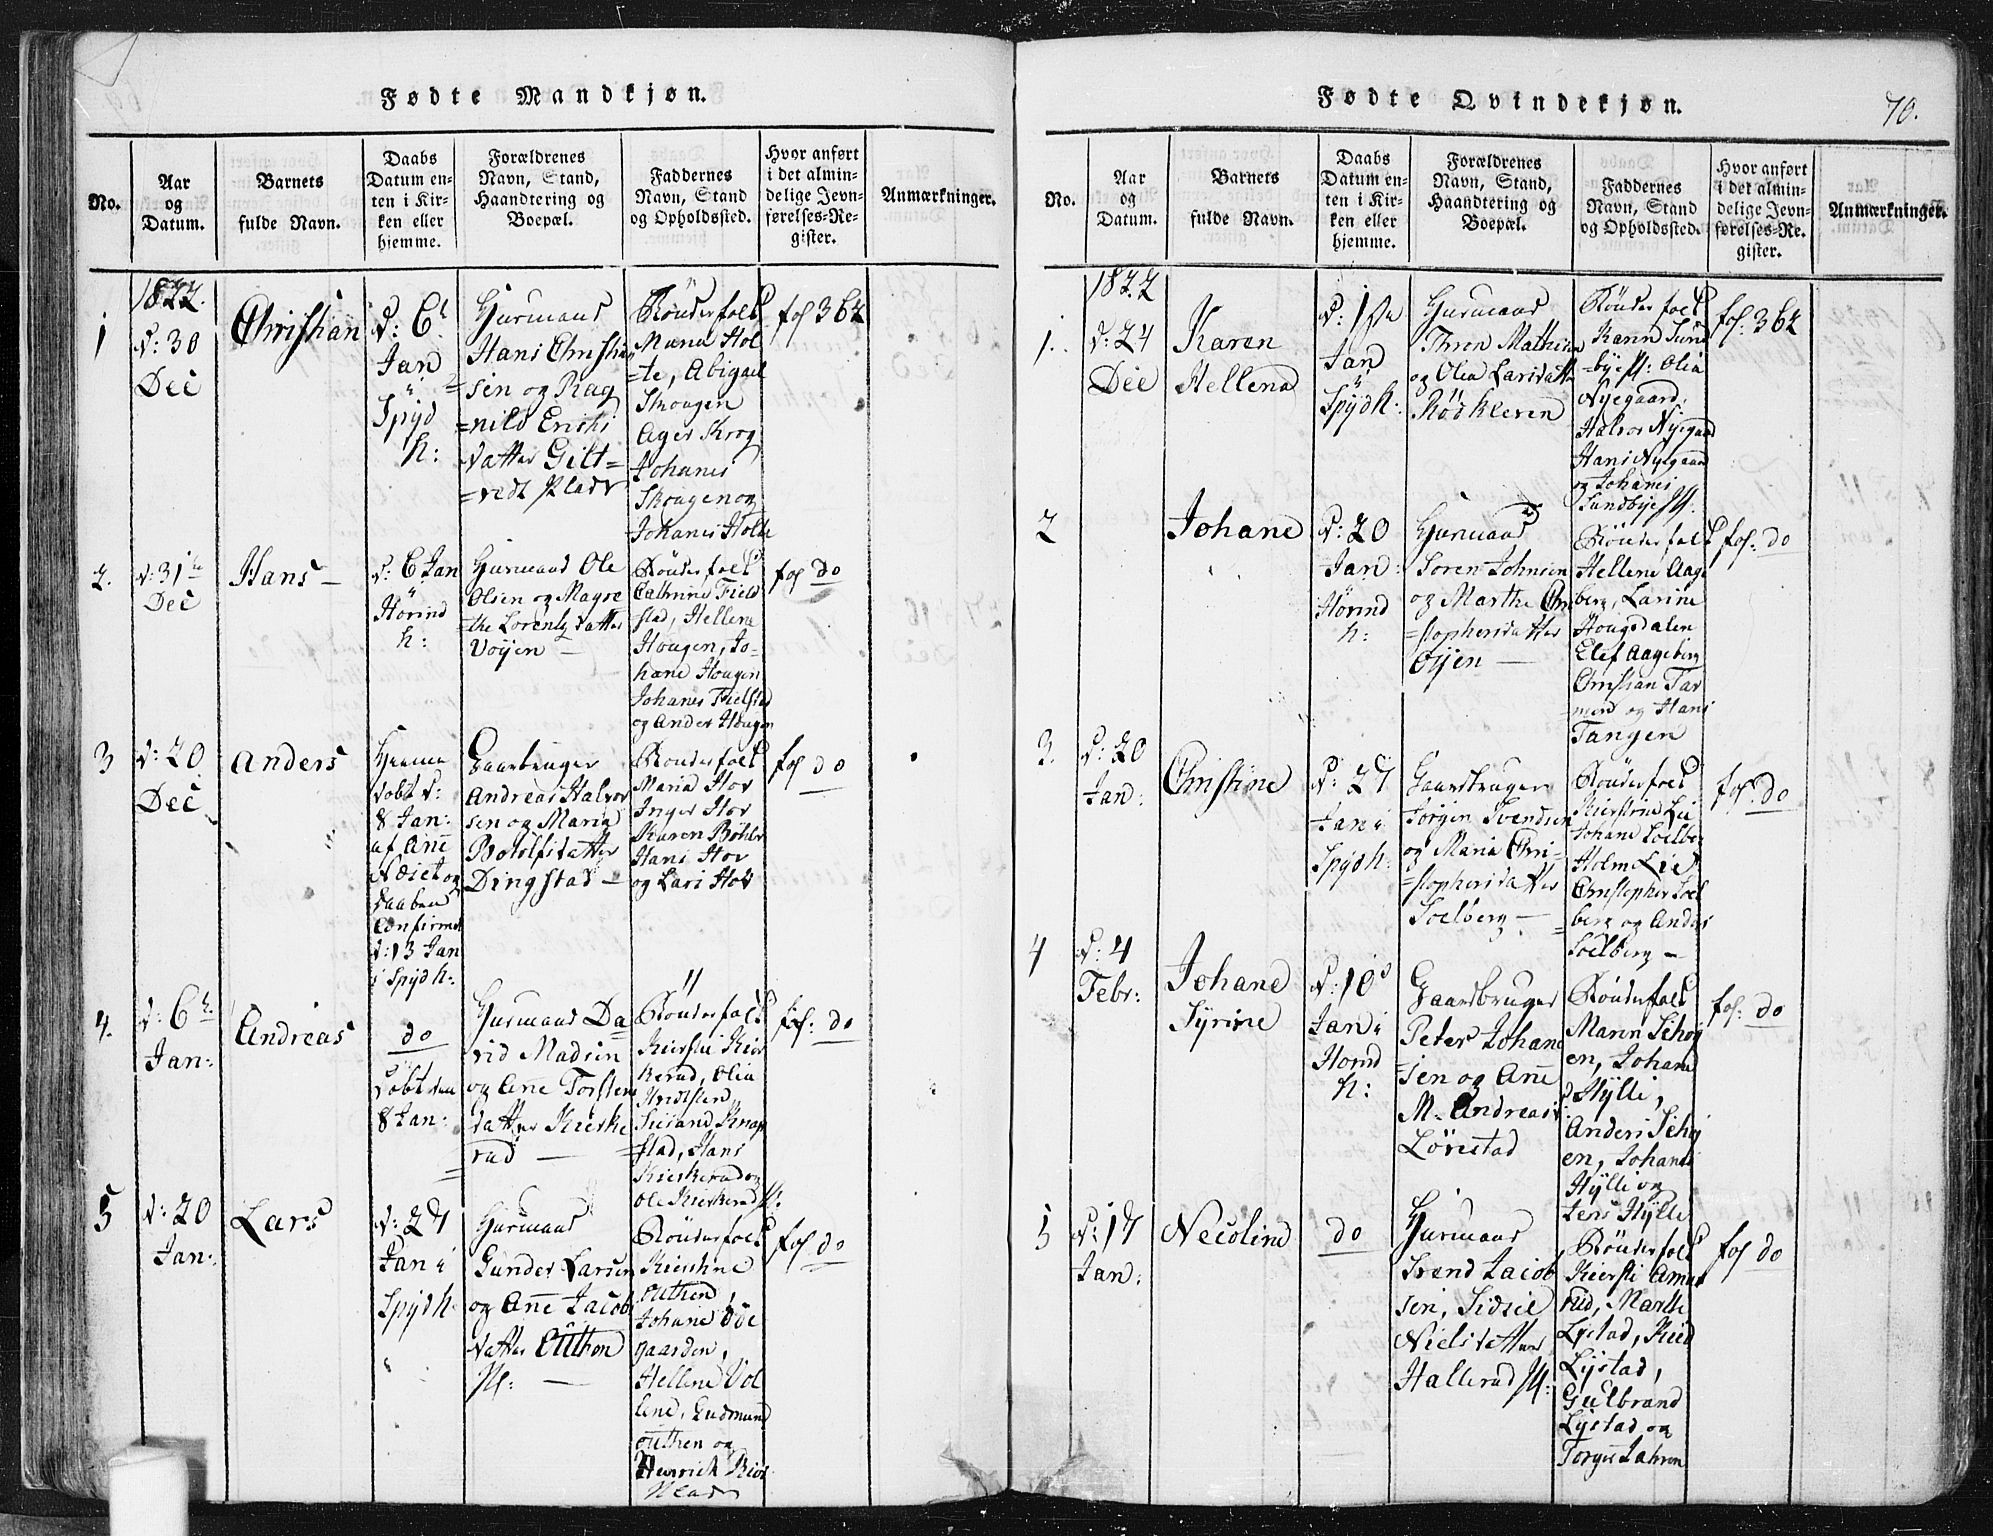 Fødte Mandkjøn.
No.
Aar
og
Datum.
Barnets
fulde Navn.
Daabs
Datum en-
ten i Kir-
ken eller
hjemme.
Forældrenes
Navn, Stand,
Haandtering og
Boepæl.
Faddernes
Navn, Stand
og Opholdssted.
Hvor anført
i det almin-
delige Jevn-
førelses-Re-
gister.
Anmærkninger.
1
1822.
d: 30
Dec
Christian
d: 6t
Jan
Spyd
h:
Huusmand
Hans Christian
sen og Rag
=nild Erichs
datter Gilt=
=vedt Plads
Bønderfolk
Maria Hol
=te, Abigael
Skougen
Ager Krog
Johanes
Skougen og
Johanes Holte
fol 362
2.
d: 31te
Dec
Hans —
d: 6 Jan
Hörind
h:
Huusmand Ole
Olsen og Magre
=the Lorentz datter
Vöyen —
Bønderfolk
Cathrine Field
stad, Hellene
Hougen, Jo-
hane Hougen
Johanes Fielstad
og Ander Hougen
fol do
3
d: 20
Dec
Anders
Hiemme
döbt d:
8 Jan:
af Ane
Næset og
daaben
Confirmert
d: 13 Jan
i Spydh:
Gaardbruger
Andreas Halvor
sen og Maria
Botolfsdatter
Dingstad —
Bønderfolk
Maria Hov
Inger Hov
Karen Böhler
Hans Hov
og Lars Hov
fol do
4.
d: 6t
Jan:
Andreas
do
döbt den
8 Jan:
Huusmand Da
vid Madsen
og Ane Torsten
datter Kierke
rud —
Bønderfolk
Kiersti Kier
kerud, Olia
Hvidsten
Siusand Knap
stad, Hans
Kierkerud og
Ole Kierkerud
fol: do
5
d: 20
Jan:
Lars
d: 27
Jan i
Spydh
Huusmand
Gunder Larsen
og Ane Jacobs
datter Outhen
Pl: —
Bønderfolk
Kierstine
outhen,
Johane Öde
gaarden,
Hellene Vol
lene, Gudmund
outhen og
Henrick Kior
Fødte Qvindekjøn.
70.
No.
Aar
og
Datum.
Barnets
fulde Navn.
Daabs
Datum en-
ten i Kir-
ken eller
hjemme.
Forældrenes
Navn, Stand,
Haandtering og
Boepæl.
Faddernes
Navn, Stand
og Opholdssted.
Hvor anført
i det almin-
delige Jevn-
førelses-Re-
gister.
Anmærkninger.
1.
1822
d: 24
Dec
Karen
Hellena
d: 1ste
Jan
Spydh:
Huusmand
Thron Mathisen
og Olia Larsdatter
Rödkleven
Bønderfolk
Karen Sund
bye Pl: Olia
Nyegaard:
Halvor Nyegaard
Hans Nyegaard
og Johanes
Sundbye Pl.
fol: 362
2
Johane
d: 20
Jan:
Hörind
h:
Huusmand
Soren Johnsen
og Marthe Chri
=stophersdatter
Öyen —
Bønderfolk
Hellene Aage
berg, Larine
Hougsdalen
Elef Aageberg
Christian Tar
men og Hans
Tangen
fol: do
3.
d: 20
Jan:
Christine
d: 27
Jan i
Spydh:
Gaardbruger
Jörgen Svendsen
og Maria Chri-
=stophersdatter
Soelberg —
Bønderfolk
Kierstine Lie
Johane Soelberg
Holm Lie
Christopher Soel
berg og Anders
Soelberg —
fol: do
4
d: 4
Febr:
Johane
Syrine
d: 10
Jan i
Horind
h:
Gaardbruger
Peter Johane
=sen og Ane
M. Andreasd:
Lörestad
Bønderfolk
Maren Schog
en, Johane
Hylli,
Anders Schog
en, Johanes
Hylli og
Jens Hylle
fol: do
5
d: 17
Jan:
Necoline
do
Huusmand
Svend Jacob
sen, Sidsel
Nielsdatter
Hallerud Pl:
Bønderfolk
Kiersti Amund
rud, Marthe
Lystad, Kield
Lystad,
Gulbrand
Lystad og
Torger Lahren
fol do